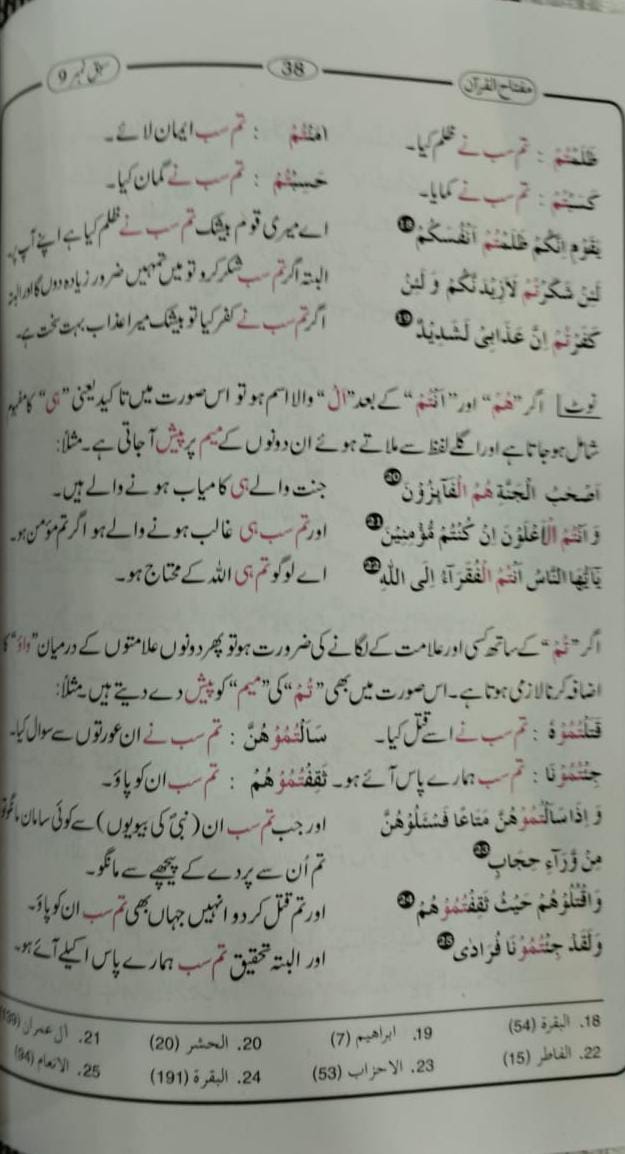 مفتاح القرآن 38 سبق نمبر 9
ظَلَمْتُمْ : تم سب نے ظلم کیا۔ اٰمَنْتُمْ : تم سب ایمان لائے۔
كَسَبْتُمْ : تم سب نے کمایا۔ حَسِبْتُمْ : تم سب نے گمان کیا۔
يٰقَوْمِ اِنَّكُمْ ظَلَمْتُمْ اَنْفُسَكُمْ 18 اے میری قوم بیشک تم سب نے ظلم کیا ہے اپنے آپ پر۔
لَئِنْ شَكَرْتُمْ لَاَزِيْدَنَّكُمْ وَ لَئِنْ البتہ اگر تم سب شکر کرو تو میں تمہیں ضرور زیادہ دوں گا اور البتہ
كَفَرْتُمْ اِنَّ عَذَابِىْ لَشَدِيْدٌ 19 اگر تم سب نے کفر کیا تو بیشک میرا عذاب بہت سخت ہے۔
نوٹ اگر "هُمْ" اور "اَنْتُمْ" کے بعد "اَلْ" والا اسم ہو تو اس صورت میں تاکید یعنی "ہی" کا مفہوم
شامل ہو جاتا ہے اور اگلے لفظ سے ملاتے ہوئے ان دونوں کے میم پر پیش آ جاتی ہے۔ مثلاً:
اَصْحٰبُ الْجَنَّةِ هُمُ الْفَآئِزُوْنَ 20 جنت والے ہی کامیاب ہونے والے ہیں۔
وَ اَنْتُمُ الْاَعْلَوْنَ اِنْ كُنْتُمْ مُّؤْمِنِيْنَ 21 اور تم سب ہی غالب ہونے والے ہو اگر تم مؤمن ہو۔
يٰٓاَيُّهَا النَّاسُ اَنْتُمُ الْفُقَرَآءُ اِلَى اللّٰهِ 22 اے لوگو تم ہی اللہ کے محتاج ہو۔
اگر "تُمْ" کے ساتھ کسی اور علامت کے لگانے کی ضرورت ہو تو پھر دونوں علامتوں کے درمیان "واؤ" کا
اضافہ کرنا لازمی ہوتا ہے۔ اس صورت میں بھی "تُمْ" کی "میم" کو پیش دے دیتے ہیں۔ مثلاً:
قَتَلْتُمُوْهُ : تم سب نے اسے قتل کیا۔ سَاَلْتُمُوْهُنَّ : تم سب نے ان عورتوں سے سوال کیا۔
جِئْتُمُوْنَا : تم سب ہمارے پاس آئے ہو۔ ثَقِفْتُمُوْهُمْ : تم سب ان کو پاؤ۔
وَ اِذَا سَاَلْتُمُوْهُنَّ مَتَاعًا فَسْئَلُوْهُنَّ اور جب تم سب ان (نبیؐ کی بیویوں) سے کوئی سامان مانگو تو
مِنْ وَّرَآءِ حِجَابٍ 23 تم اُن سے پردے کے پیچھے سے مانگو۔
وَاقْتُلُوْهُمْ حَيْثُ ثَقِفْتُمُوْهُمْ 24 اور تم قتل کر دو انہیں جہاں بھی تم سب ان کو پاؤ۔
وَلَقَدْ جِئْتُمُوْنَا فُرَادٰى 25 اور البتہ تحقیق تم سب ہمارے پاس اکیلے آئے ہو۔
18. البقرة (54) 19. ابراهيم (7) 20. الحشر (20) 21. آل عمران (139)
22. الفاطر (15) 23. الاحزاب (53) 24. البقرة (191) 25. الانعام (94)